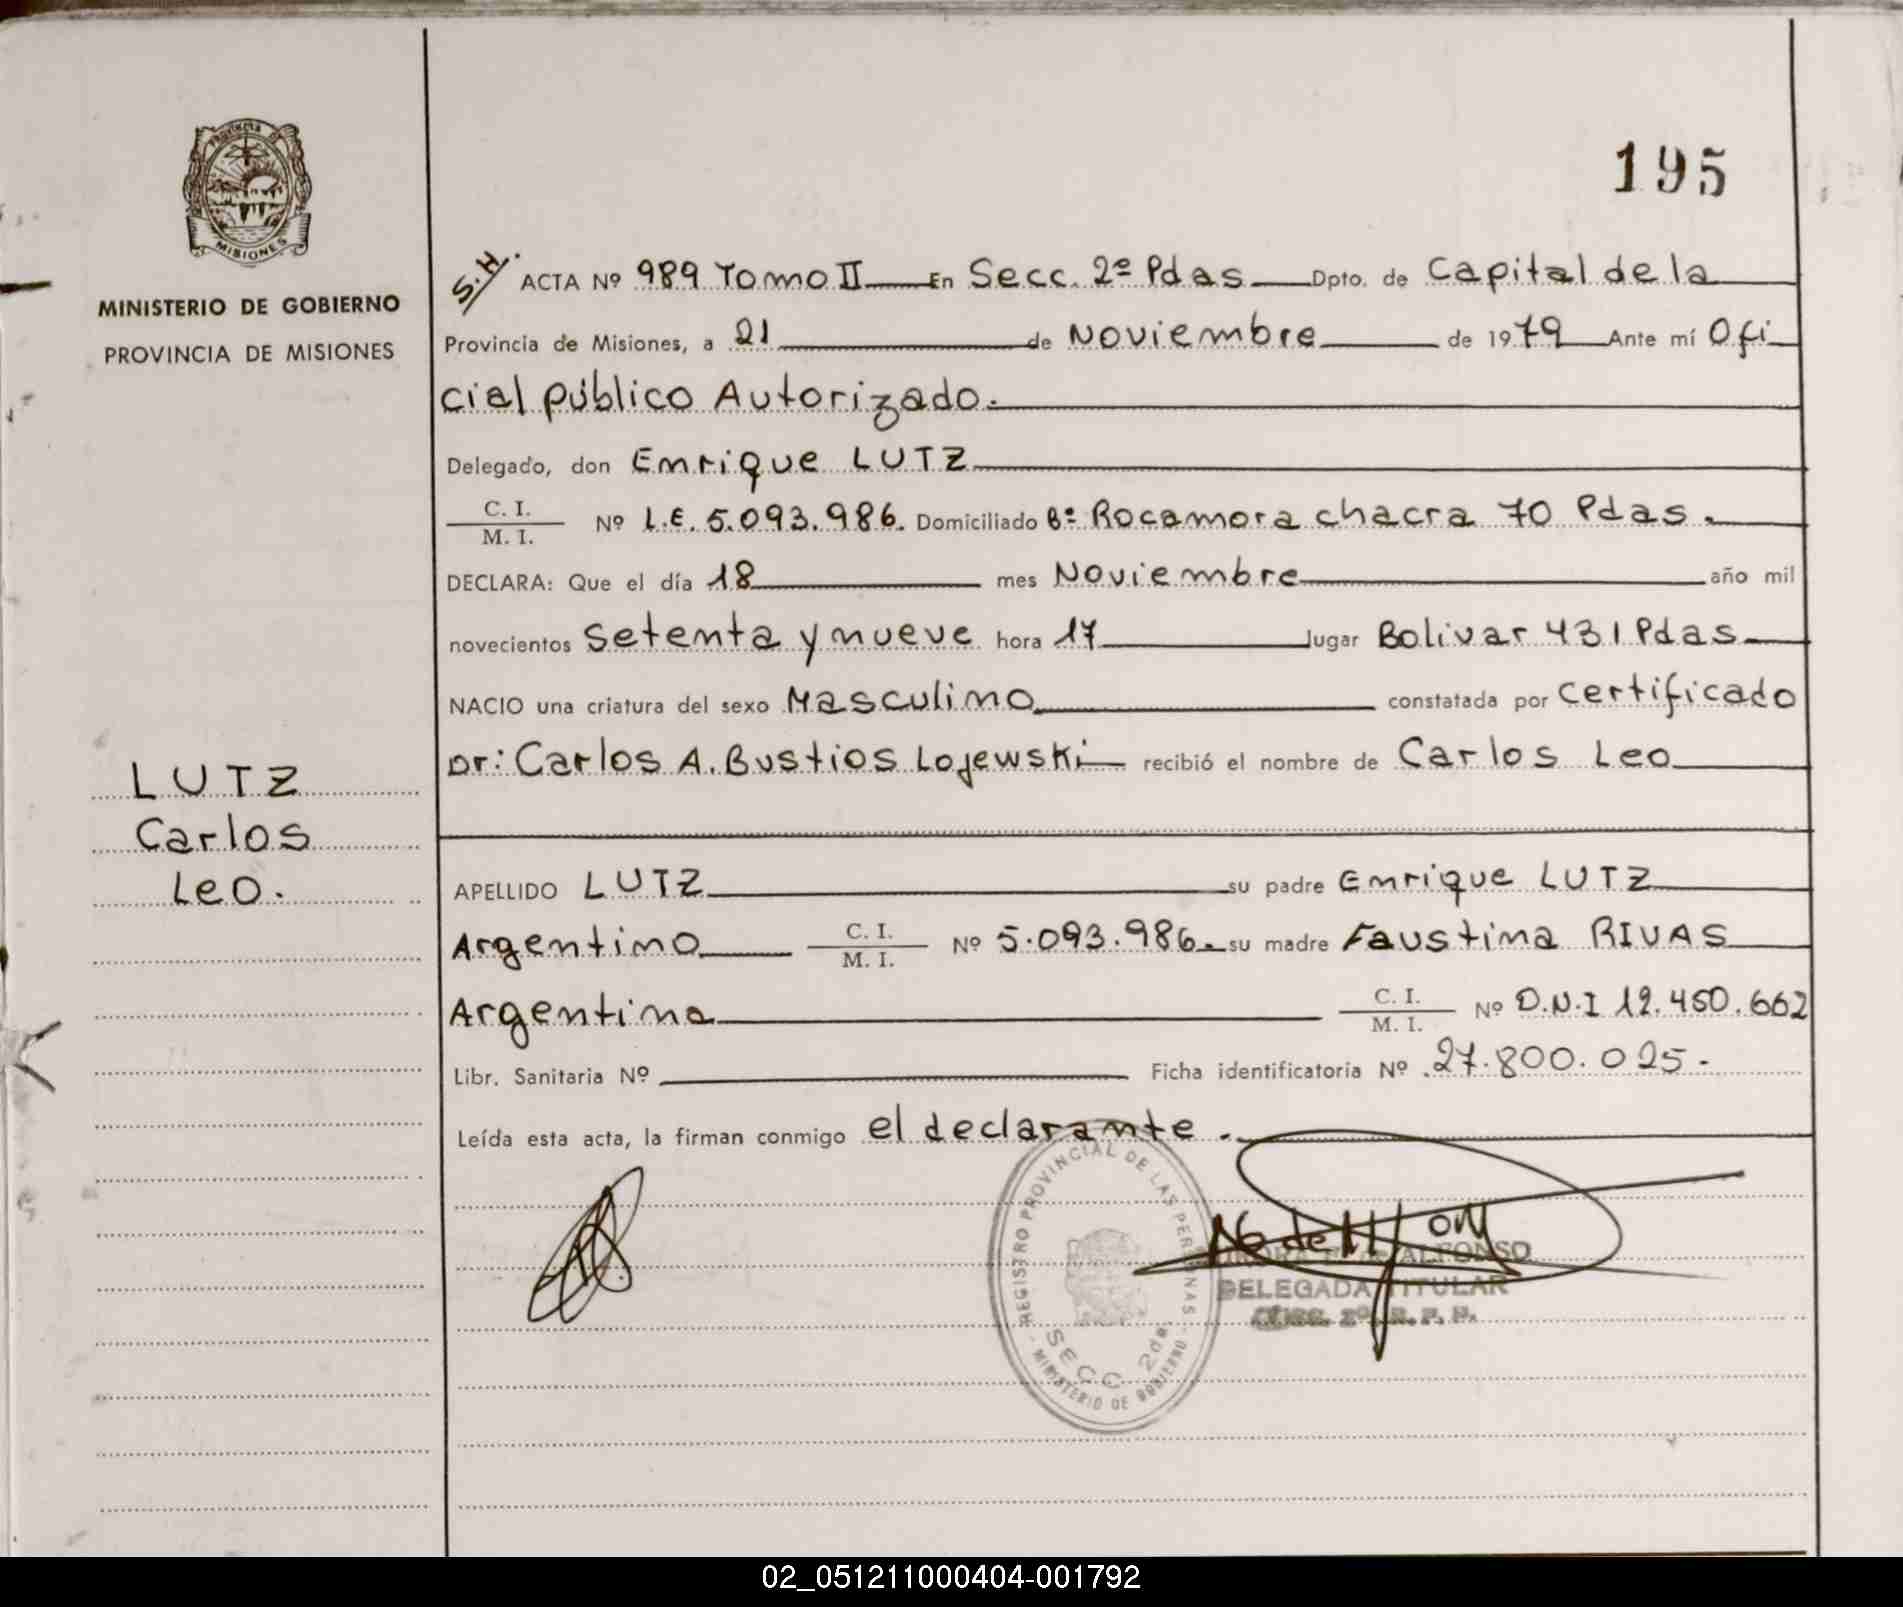 195
PROVINCIA DE
MISIONES
MINISTERIO DE GOBIERNO
PROVINCIA DE MISIONES
LUTZ
Carlos
Leo.
S.H.
ACTA Nº 989 Tomo II En Secc. 2º Pdas Dpto. de Capital de la
Provincia de Misiones, a 21 de Noviembre de 1979 Ante mí Ofi
cial público Autorizado.
Delegado, don Enrique LUTZ
C. I.
M. I.
Nº L.E. 5.093.986. Domiciliado Bº Rocamora chacra 70 Pdas.
DECLARA: Que el día 18 mes Noviembre año mil
novecientos Setenta y nueve hora 17 lugar Bolivar 431 Pdas
NACIO una criatura del sexo Masculino constatada por Certificado
Dr: Carlos A. Bustios Lojewski recibió el nombre de Carlos Leo
APELLIDO LUTZ su padre Enrique LUTZ
Argentino C. I.
M. I.
Nº 5.093.986. su madre Faustina RIVAS
Argentina C. I.
M. I.
Nº D.N.I 12.450.662
Libr. Sanitaria Nº Ficha identificatoria Nº 27.800.025.
Leída esta acta, la firman conmigo el declarante.
REGISTRO PROVINCIAL DE LAS PERSONAS
SECC. 2da.
MINISTERIO DE GOBIERNO
ALFONSO
DELEGADA TITULAR
02_051211000404-001792